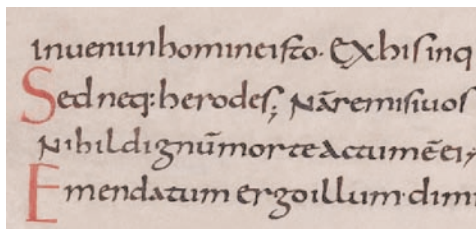 inuenunhomineisto· Exhisinq
Sed neq:herodes; Nāremisiuos
Nihildignūmorteactumēei;
Emendatum ergoillum·dimi